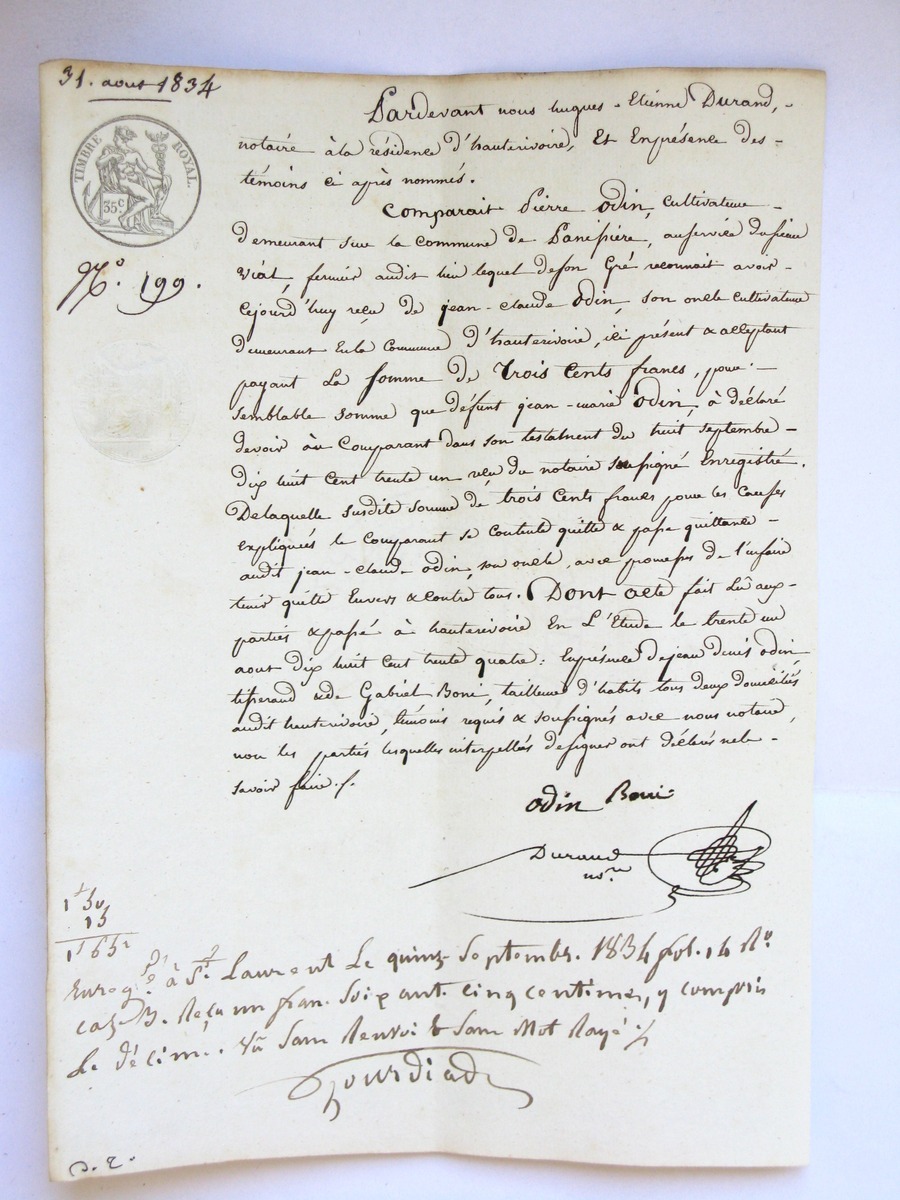 31. aout 1834
TIMBRE ROYAL.
35c
N.o 199.
Pardevant nous hugues-Etienne Durand,-
notaire à la résidence d'hauterivoire, Et Enprésence des-
témoins ci après nommés.
Comparait Pierre Odin, cultivateur-
demeurant sur la commune de , auservice dusieur
Viat, fermier audit lieu lequel deson Gré reconnait avoir-
Cejourd'huy reçu de jean-claude odin, son oncle cultivateur
demeurant Enla Commune d'hauterivoire, ici présent & acceptant
payant La Somme de Trois Cents francs, pour-
semblable somme que défunt jean-marie Odin, à déclaré
devoir au Comparant dans son testament du huit septembre-
dix huit cent trente un reçu du notaire soussigné Enregistré.
Delaquelle susdite somme de trois Cents francs pour les Causes
Expliquées le Comparant se contente quitte & passe quittance-
audit jean-claude odin, son oncle, avec promesses de l'enfaire
tenir quitte Envers & contre tous. Dont acte fait Lû aux-
parties & passé à hauterivoire En L'Etude le trente un
aout dix huit cent trente quatre: Enprésence dejean denis odin
tisserand & de Gabriel Boni, tailleur d'habits tous deux domiciliés
audit hauterivoire, témoins requis & soussignés avec nous notaire,
non les parties lesquelles interpellées designer ont déclaré nele-
savoir faire./.
odin Boni
Durand
no.re
1f 50
15
1f 65c
Enreg.é à S.t Laurent Le quinze Septembre. 1834 fol. 14 R.o
caze 3. Reçu un franc Soixante cinq centimes, y compris
Le décime. Vû Sans Renvoi & Sans Mot Rayé./.
D. R.